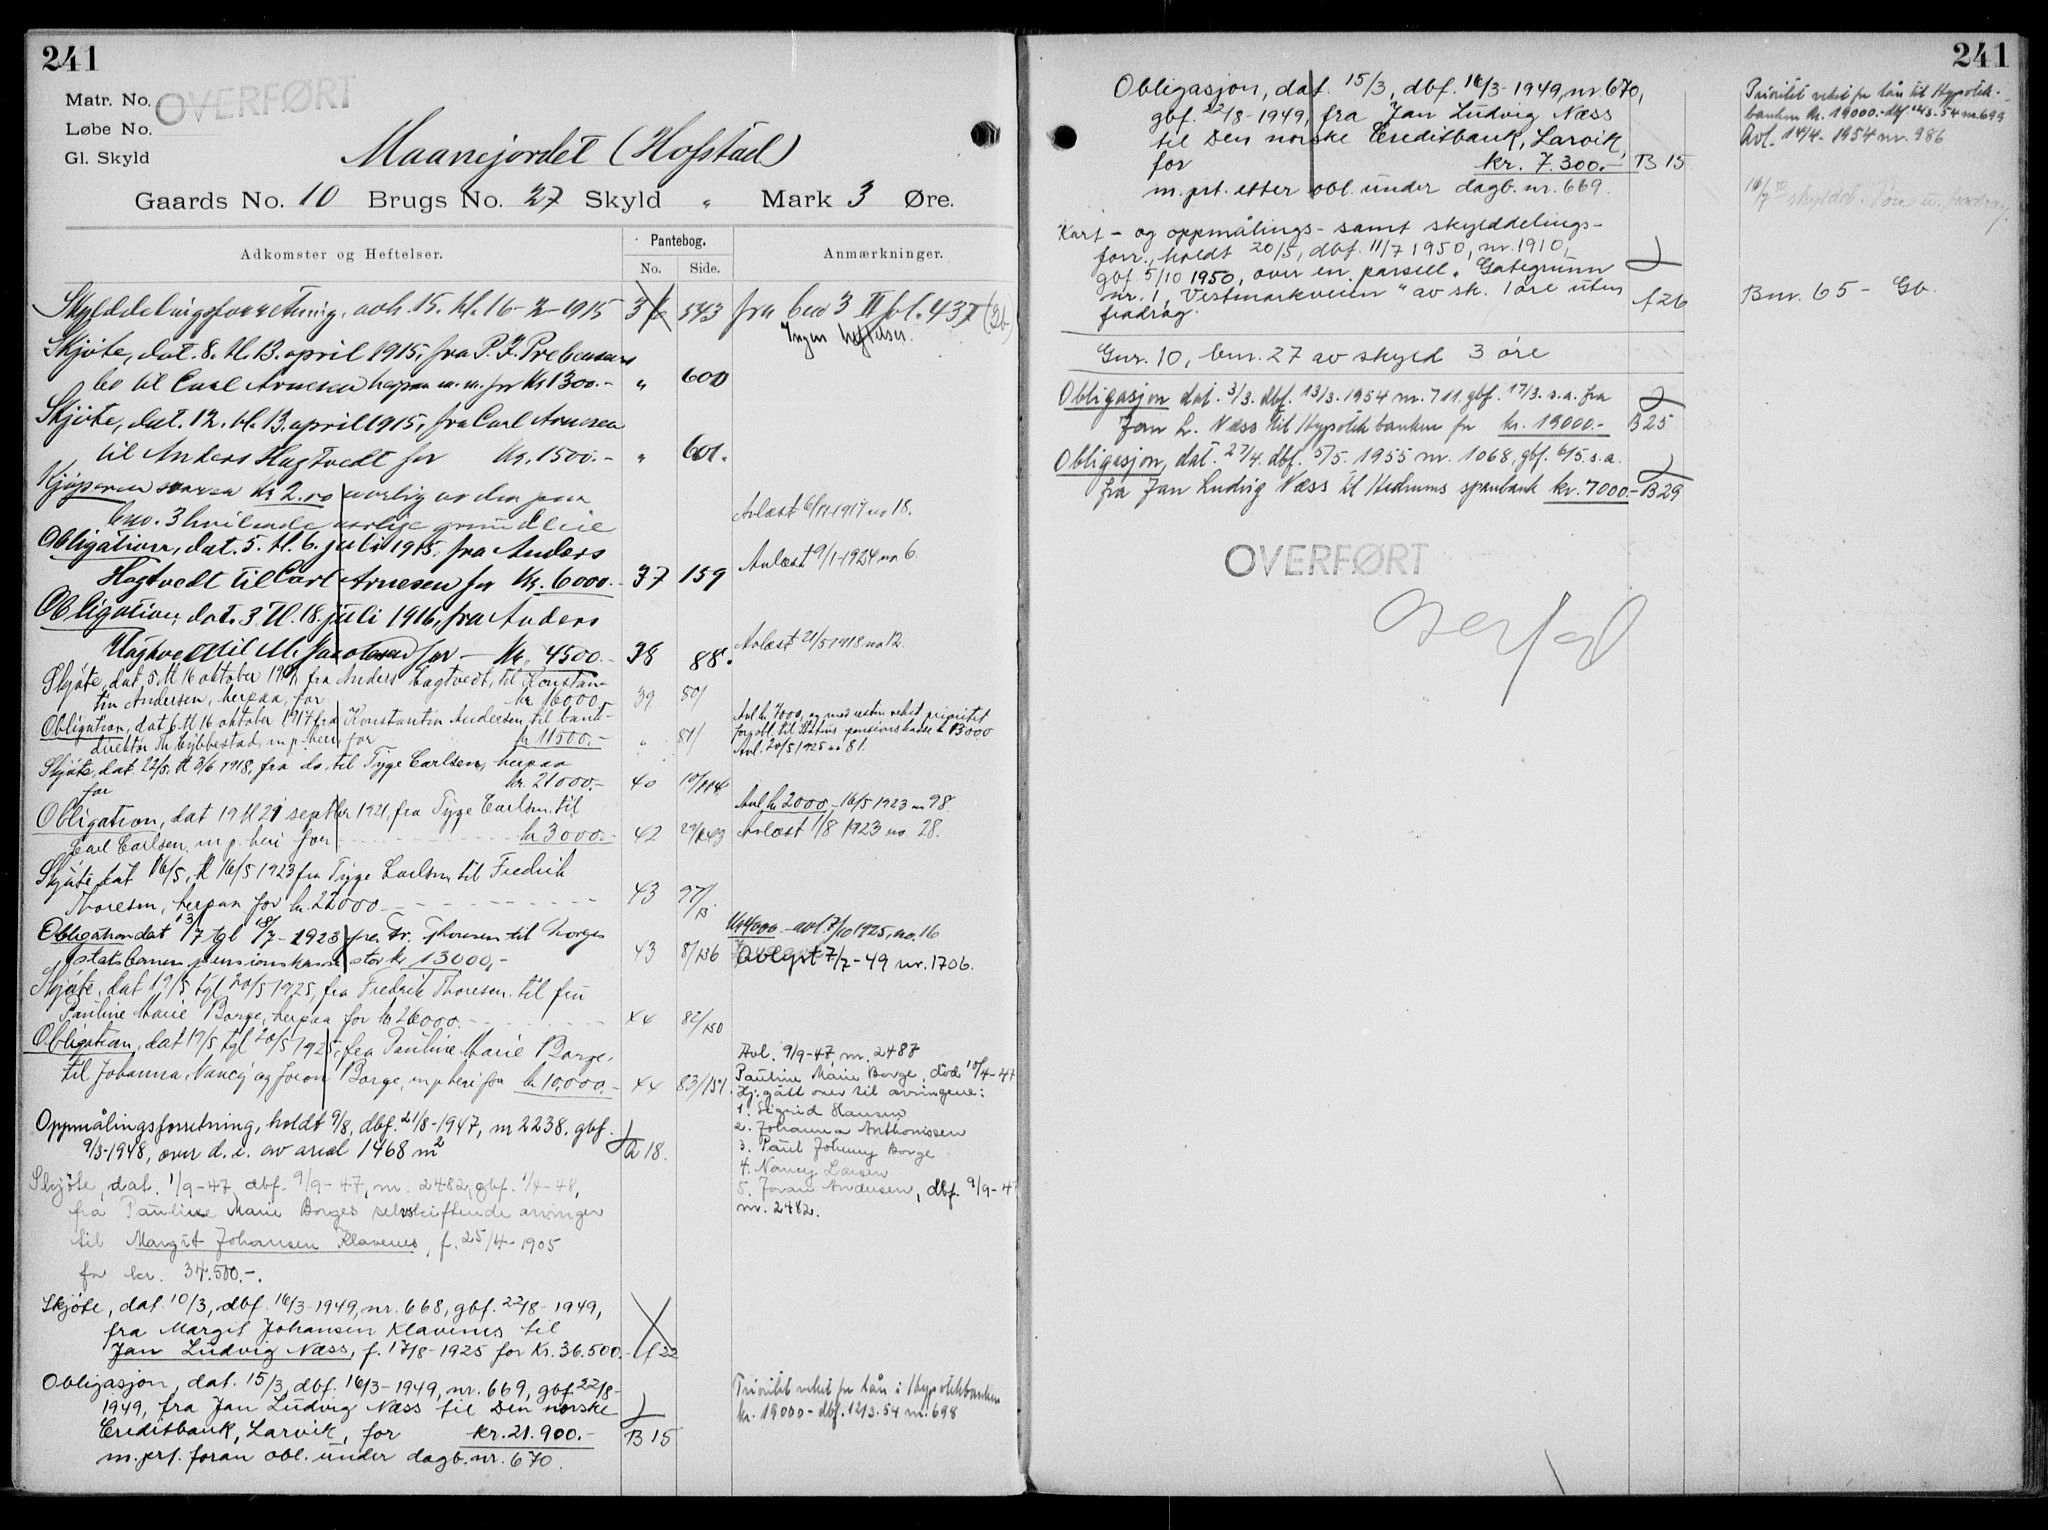 241
Matr. No.
OVERFØRT
Løbe No.
Gl. Skyld
Maanejordet (Hofstad)
Gaards No. 10 Brugs No. 27 Skyld " Mark 3 Øre.
Adkomster og Heftelser.
Pantebog.
No. Side.
Anmærkninger.
Skylddelingsforretning, avh. 15. tl. 16-2-1915 36 543 fra bno 3 II fol. 437 (3b)
Ingen heftelser.
Skjøte, dat. 8. tl. 13. april 1915, fra P. F. Prebensens
bo til Carl Arnesen herpaa m. m. for Kr 1300.- " 600
Skjøte, dat. 12. tl. 13. april 1915, fra Carl Arnesen
til Anders Hagtvedt for Kr. 1500.- " 601.
Kjøperen svarer Kr 2.00 aarlig av den paa
bno. 3 hvilende aarlige grundleie
Avlæst 6/11-1917 no 18.
Obligation, dat. 5. tl. 6. juli 1915, fra Anders
Hagtvedt til Carl Arnesen for Kr. 6000.- 37 159
Avlæst 9/1-1924 no 6.
Obligation, dat. 3. tl. 18. juli 1916, fra Anders
Hagtvedt til M. Jacobsen for - Kr. 4500.- 38 88.
Avlæst 21/5 1918 no 12.
Skjøte, dat. 5. tl 16 oktober 1917 fra Anders Hagtvedt, til Konstan-
tin Andersen, herpaa, for kr. 16000.- 39 80/
Obligation, dat 6. tl 16 oktober 1917 fra Konstantin Andersen, til bank-
direktør Th. Lybbestad, m. p. heri, for kr 11500.- " 81/
Avl kr. 7000, og med resten veket prioritet
for obl. til Statens pensionskasse k 13000
Avl. 20/5 1925 no 81.
Skjøte, dat. 22/5, tl 3/6 1918, fra do. til Tyge Carlsen, herpaa
for kr. 21000.- 40 10/114
Obligation, dat 19 tl 21 septber 1921, fra Tyge Carlsen til
Carl Carlsen, m. p. heri for kr 3000.- 42
Avl kr 2000.- 16/5 1923 no 98.
Avlæst 1/8 1923 no. 28.
Skjøte, dat 16/5, tl 16/5 1923 fra Tyge Carlsen, til Fredrik
Thoresen, herpaa for kr. 22000 43 97/13
Obligation dat 13/7 tgl 18/7-1923 fra Fr. Thoresen til Norges
statsbaners pensionskasse stor kr 13000,- 43 8/136
Kr 4000.- avl. 7/10 1925, no. 16
Avlyst 7/7-49 nr. 1706.
Skjøte, dat 19/5 tgl 20/5 1925, fra Fredrik Thoresen, til fru
Pauline Marie Borge, herpaa for kr 26000.- 44 82/150
Obligation, dat 19/5 tgl 20/5 1925, fra Pauline Marie Borge,
til Johanna, Nancy og Joron Borge, m. p. heri for kr 10,000.- 44 83/151.
Avl. 9/9-47, nr. 2487
Pauline Marie Borge, død 10/4-47
Hj. gått over til arvingene:
1. Sigrid Hansen
2. Johanna Anthonissen
3. Paul Johnny Borge
4. Nancy Larsen
5. Joran Andersen, dbf. 9/9-47
nr. 2482.
Oppmålingsforretning, holdt 9/8, dbf. 21/8-1947, nr 2238, gbf.
9/3-1948, over d. e. av areal 1468 m² A 18.
Skjøte, dat. 1/9-47, dbf. 9/9-47, nr. 2482, gbf. 1/4-48,
fra Pauline Marie Borges selvskiftende arvinger
til Margit Johansen Klavenes, f. 25/4-1905
for kr. 34.500.-.
Skjøte, dat. 10/3, dbf. 16/3-1949, nr. 668, gbf. 22/8-1949,
fra Margit Johansen Klavenes til
Jan Ludvig Næss, f. 17/8-1925 for kr. 36.500.- A 22
Obligasjon, dat. 15/3, dbf. 16/3-1949, nr. 669, gbf 22/8-
1949, fra Jan Ludvig Næss til Den norske
Creditbank, Larvik, for kr. 21.900.- B 15
m. prt. foran obl. under dagb. nr. 670.
Prioritet veket for lån i Hypotekbanken
kr. 19000- dbf. 12/3.54 nr. 698
241
Obligasjon, dat. 15/3, dbf. 16/3-1949, nr. 670,
gbf. 22/8-1949, fra Jan Ludvig Næss
til Den norske Creditbank, Larvik,
for kr. 7.300.- B 15
m. prt. etter obl. under dagb. nr. 669.
Prioritet veket for lån til Hypotek-
banken kr. 19000.- dbf 12/3-54 nr 699
Avl. 14/4-1954 nr. 986
Kart- og oppmålings- samt skylddelings-
forr., holdt 20/5, dbf. 11/7 1950, nr. 1910,
gbf. 5/10 1950, over en parsell "Gategrunn
nr. 1, Vestmarkveien" av sk. 1 øre uten
fradrag. A 26 Bnr. 65 - Gb.
Gnr. 10, bnr. 27 av skyld 3 øre
Obligasjon dat. 3/3. dbf. 13/3. 1954 nr. 711, gbf. 17/3. s. a. fra
Jan L. Næss til Hypotekbanken for kr. 19000.- B 25
Obligasjon, dat. 27/4. dbf. 5/5. 1955 nr. 1068, gbf. 6/5. s. a.
fra Jan Ludvig Næss til Hedrums sparebank kr. 7000.- B 29
OVERFØRT
Overført